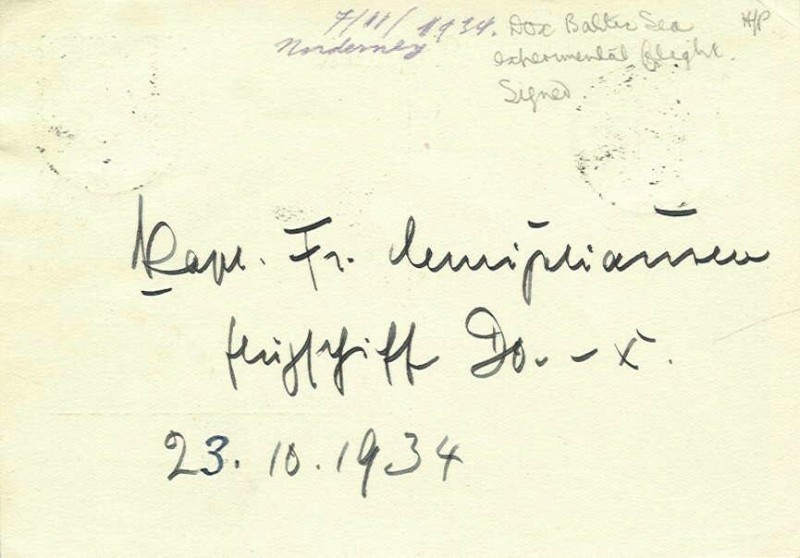 7/11/1934.
Norderney
Dox Baltic Sea
experimental flight.
Signed.
H/P
Kapt. Fr. Christiansen
Flugschiff Do. - X.
23.10.1934